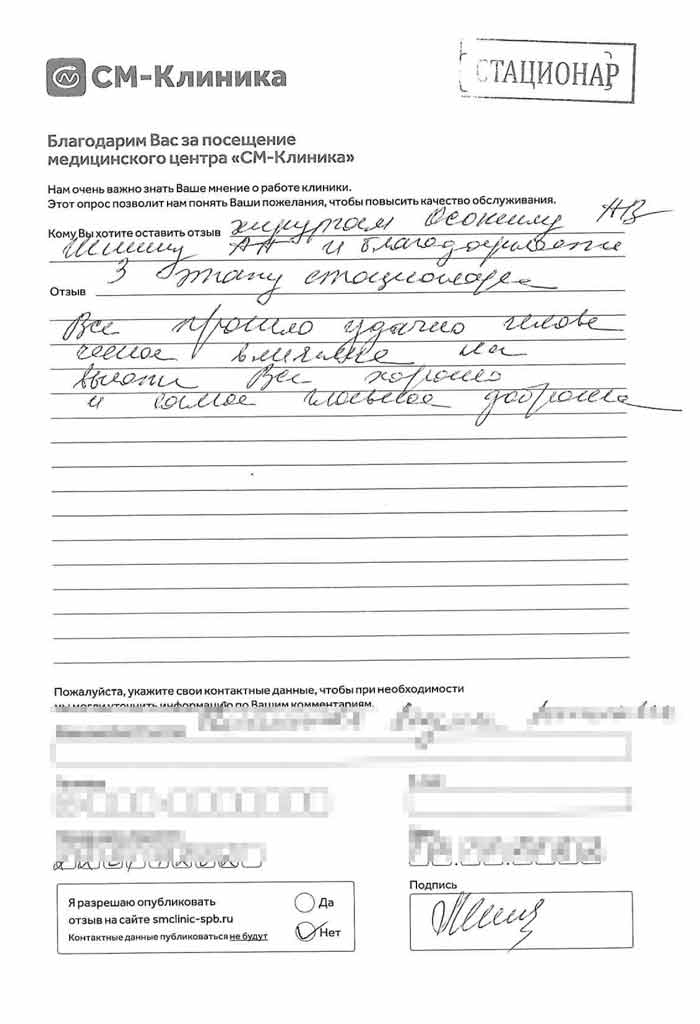 СМ-Клиника
СТАЦИОНАР
Благодарим Вас за посещение
медицинского центра «СМ-Клиника»
Нам очень важно знать Ваше мнение о работе клиники.
Этот опрос позволит нам понять Ваши пожелания, чтобы повысить качество обслуживания.
Кому Вы хотите оставить отзыв хирургам Осокину АВ
Шишину АН и благодарности
Отзыв 3 этапу стационара
Все прошло удачно челове
ческое на
высоте Все хорошо
и самое главное доброта
Пожалуйста, укажите свои контактные данные, чтобы при необходимости
мы могли уточнить информацию по Вашим комментариям.
Подпись
Я разрешаю опубликовать
отзыв на сайте smclinic-spb.ru
Контактные данные публиковаться не будут
Да
Нет